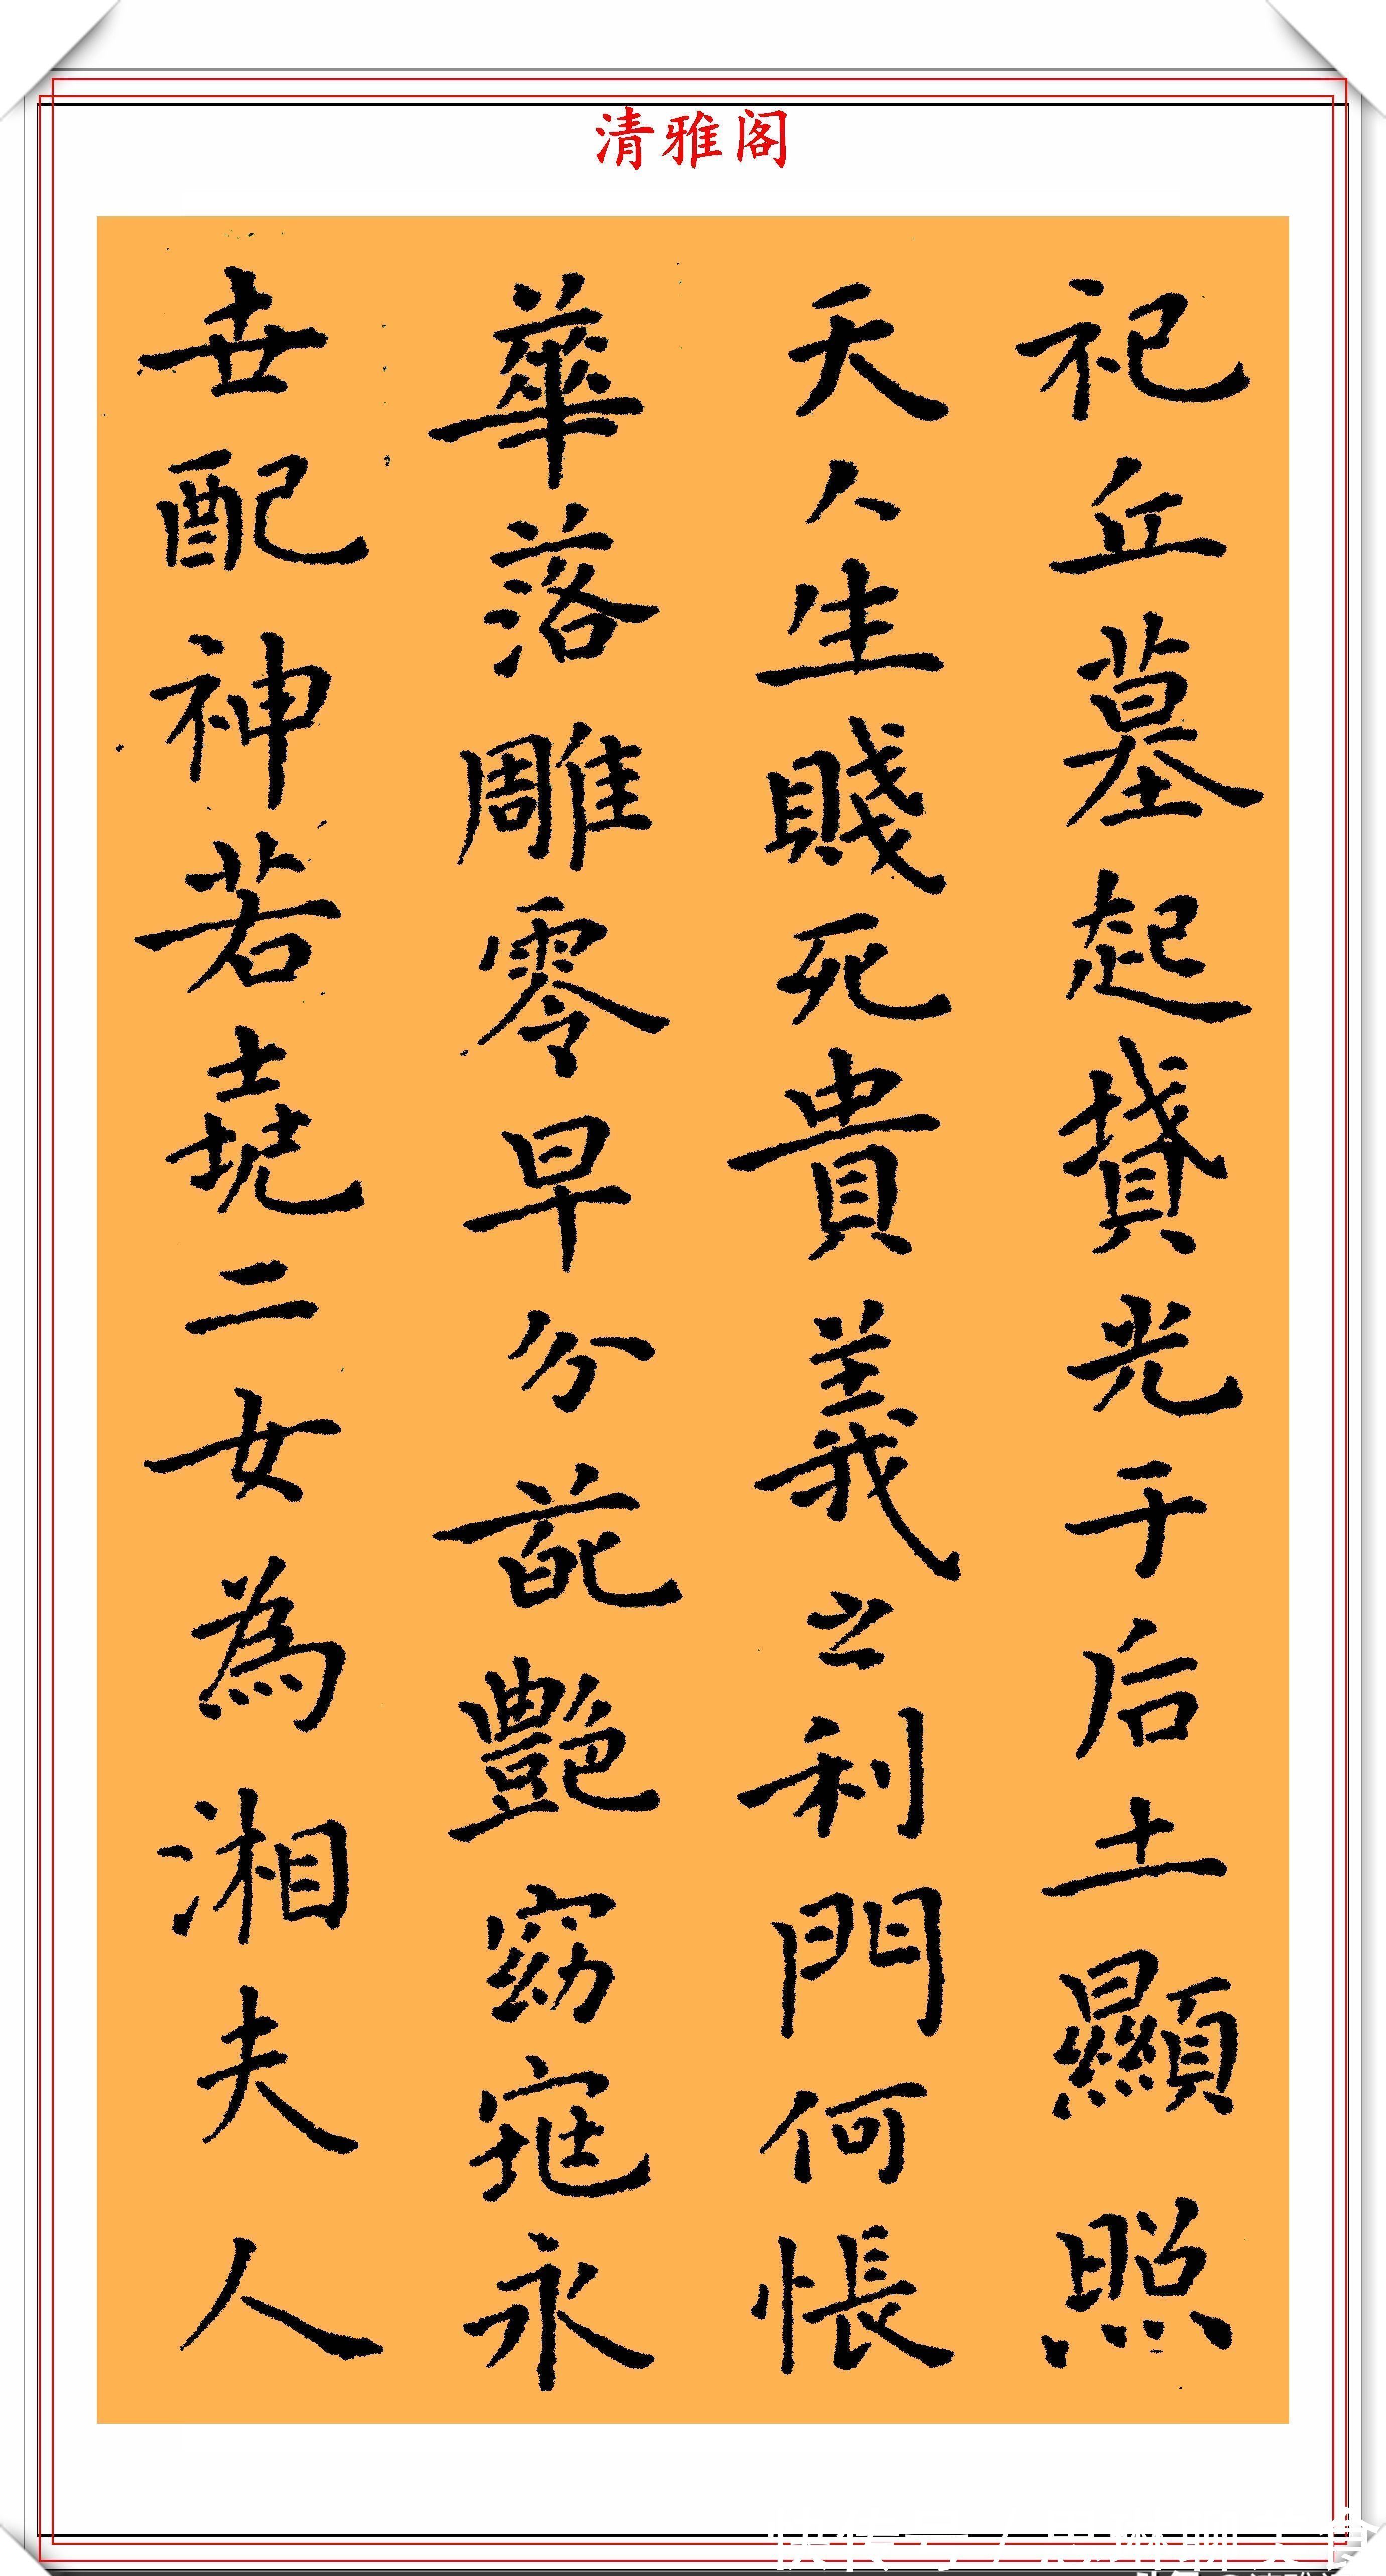 清雅阁
祀丘墓起墳光于后土顯照
天人生賤死貴義之利門何悵
華落雕零早分葩艷窈窕永
世配神若堯二女為湘夫人